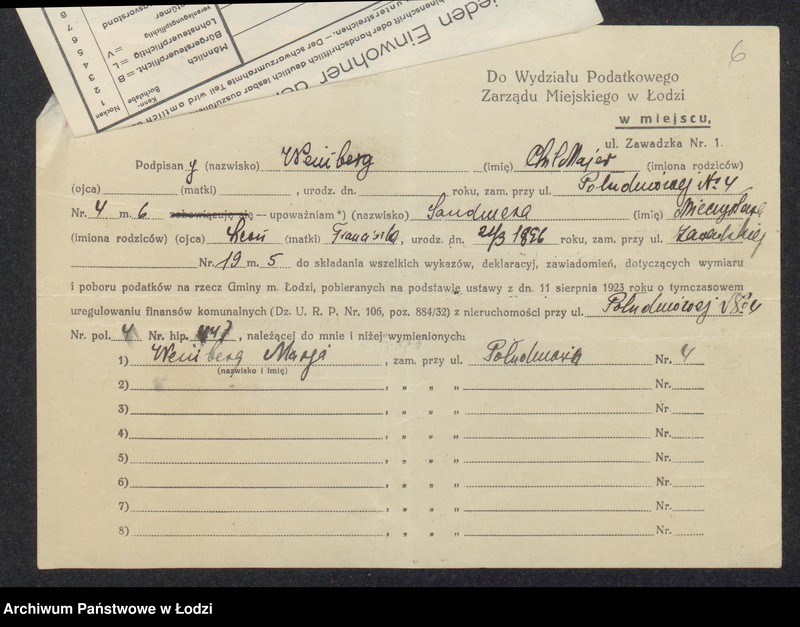 jeden Einwohner der
binenschrift oder handschriftlich deutlich lesbar auszufüllen
unterstreichen. — Der schwarzumrahmte Teil wird amtlich
Männlich
Bürgersteuerpflicht. = B
Lohnsteuerpflichtig = L
= V
Kenn-Buchstabe
Nocken
1
2
3
4
5
6
7
8
6
Do Wydziału Podatkowego
Zarządu Miejskiego w Łodzi
w miejscu,
ul. Zawadzka Nr. 1.
Podpisany (nazwisko) Weinberg (imię) Chil Majer (imiona rodziców)
(ojca) (matki) , urodz. dn. roku, zam. przy ul. Południowej No 4
Nr. 4 m. 6 zobowiązuję się — upoważniam*) (nazwisko) (imię) Mieczysława
(imiona rodziców) (ojca) Leon (matki) Franciszka, urodz. dn. 21/3 1896 roku, zam. przy ul. Zawadzkiej
Nr. 19 m. 5 do składania wszelkich wykazów, deklaracyj, zawiadomień, dotyczących wymiaru
i poboru podatków na rzecz Gminy m. Łodzi, pobieranych na podstawie ustawy z dn. 11 sierpnia 1923 roku o tymczasowem
uregulowaniu finansów komunalnych (Dz. U. R. P. Nr. 106, poz. 884/32) z nieruchomości przy ul. Południowej No 4
Nr. pol. 4 Nr. hip. 447, należącej do mnie i niżej wymienionych:
1) Weinberg Marja , zam. przy ul. Południowa Nr. 4
(nazwisko i imię)
2) , „ „ „ Nr.
3) , „ „ „ Nr.
4) , „ „ „ Nr.
5) , „ „ „ Nr.
6) , „ „ „ Nr.
7) , „ „ „ Nr.
8) , „ „ „ Nr.
Archiwum Państwowe w Łodzi